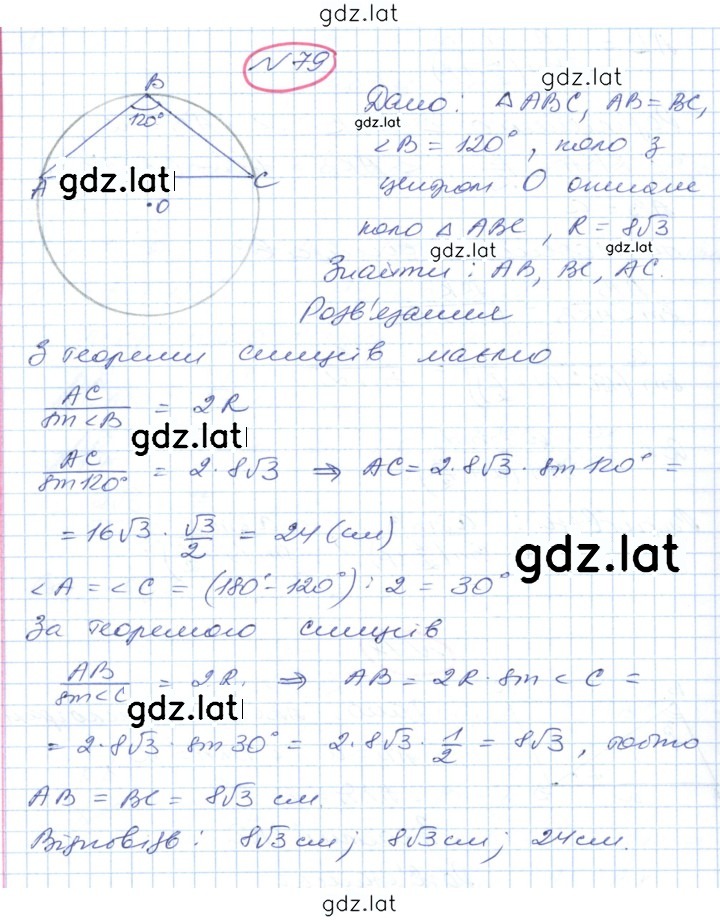 gdz.lat
№79
B
120°
A
C
O
gdz.lat
Дано: △ABC, AB = BC,
gdz.lat
gdz.lat
∠B = 120°, коло з
центром О описане
коло △ABC, R = 8√3
gdz.lat
gdz.lat
Знайти: AB, BC, AC.
Розв'язання
З теореми синусів маємо
AC / sin∠B = 2R
gdz.lat
AC / sin120° = 2·8√3 ⇒ AC = 2·8√3·sin120° =
= 16√3 · √3/2 = 24 (см)
gdz.lat
∠A = ∠C = (180° - 120°) : 2 = 30°
За теоремою синусів
AB / sin∠C = 2R. ⇒ AB = 2R·sin∠C =
gdz.lat
= 2·8√3·sin30° = 2·8√3·1/2 = 8√3, тобто
AB = BC = 8√3 см.
Відповідь: 8√3 см; 8√3 см; 24 см.
gdz.lat